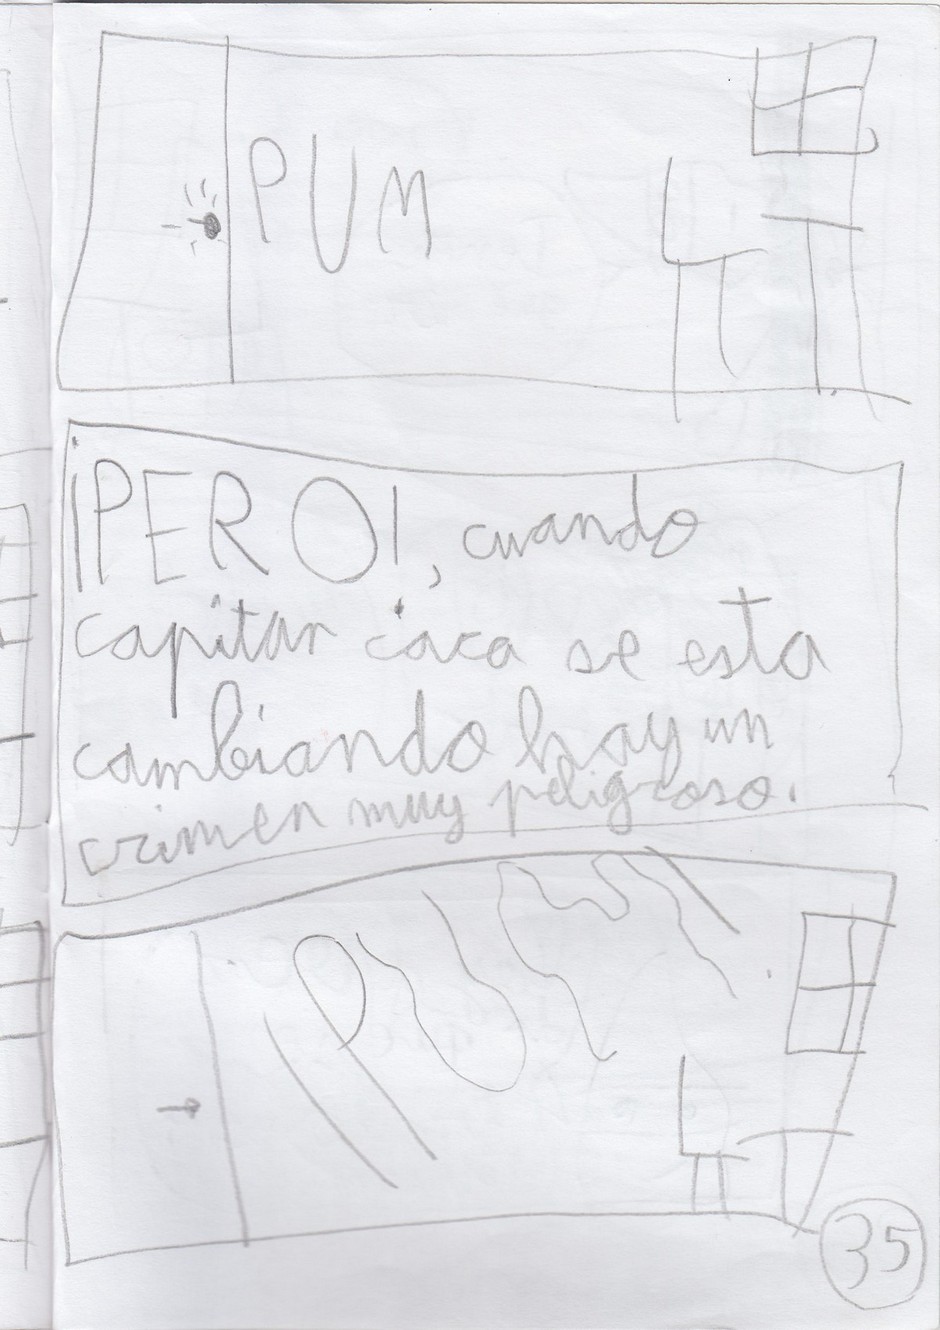 PUM
¡PERO!, cuando
capitan caca se esta
cambiando hay un
crimen muy peligroso.
PUM
35